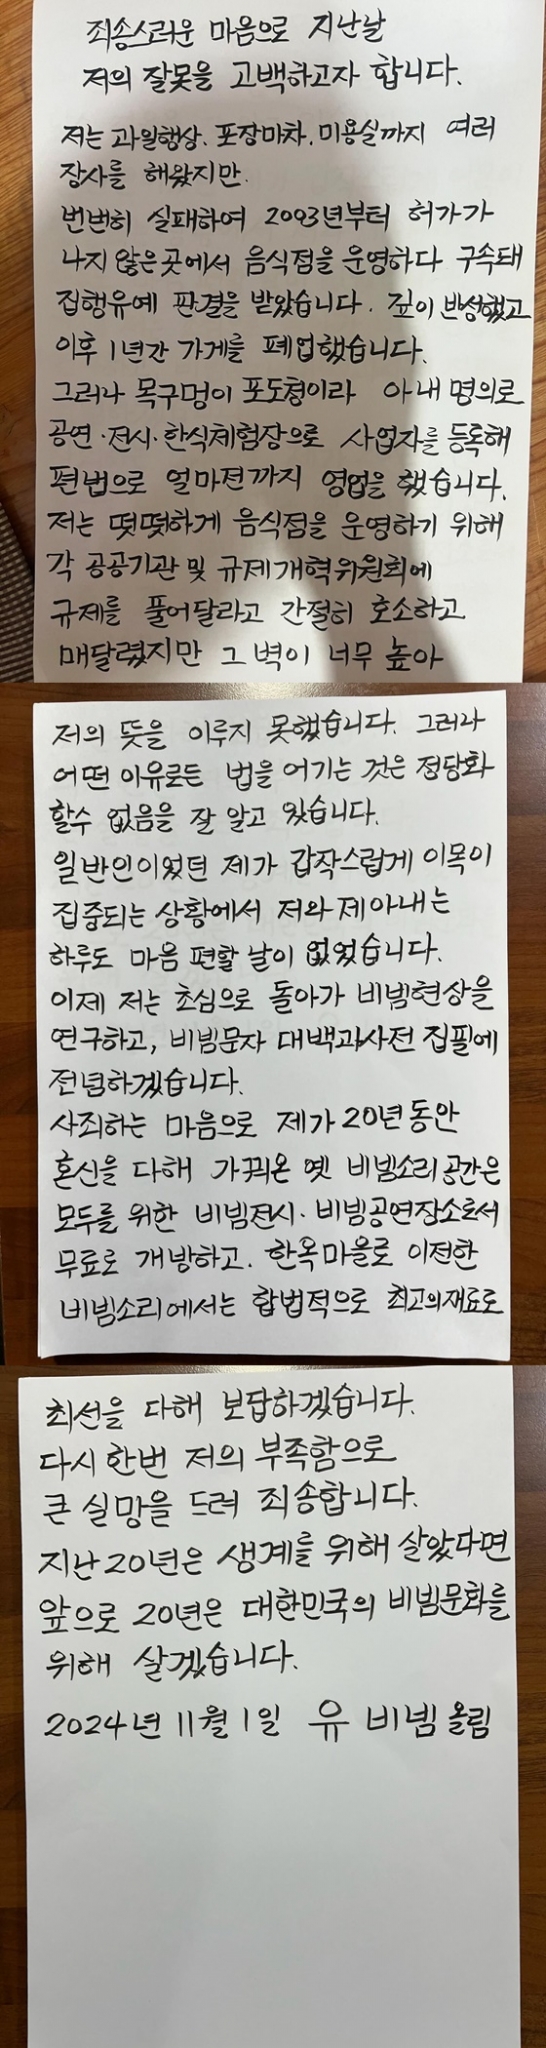 죄송스러운 마음으로 지난날
저의 잘못을 고백하고자 합니다.
저는 과일행상. 포장마차. 미용실까지 여러
장사를 해왔지만.
번번히 실패하여 2003년부터 허가가
나지 않은 곳에서 음식점을 운영하다 구속돼
집행유예 판결을 받았습니다. 깊이 반성했고
이후 1년간 가게를 폐업했습니다.
그러나 목구멍이 포도청이라 아내 명의로
공연·전시·한식체험장으로 사업자를 등록해
편법으로 얼마전까지 영업을 했습니다.
저는 떳떳하게 음식점을 운영하기 위해
각 공공기관 및 규제개혁위원회에
규제를 풀어달라고 간절히 호소하고
매달렸지만 그 벽이 너무 높아
저의 뜻을 이루지 못했습니다. 그러나
어떤 이유로든 법을 어기는 것은 정당화
할수 없음을 잘 알고 있습니다.
일반인이었던 제가 갑작스럽게 이목이
집중되는 상황에서 저와 제 아내는
하루도 마음 편할 날이 없었습니다.
이제 저는 초심으로 돌아가 비빔현상을
연구하고, 비빔문자 대백과사전 집필에
전념하겠습니다.
사죄하는 마음으로 제가 20년 동안
혼신을 다해 가꿔온 옛 비빔소리 공간은
모두를 위한 비빔전시·비빔공연장소로서
무료로 개방하고. 한옥마을로 이전한
비빔소리에서는 합법적으로 최고의재료로
최선을 다해 보답하겠습니다.
다시 한번 저의 부족함으로
큰 실망을 드려 죄송합니다.
지난 20년은 생계를 위해 살았다면
앞으로 20년은 대한민국의 비빔문화를
위해 살겠습니다.
2024년 11월 1일 유 비빔 올림